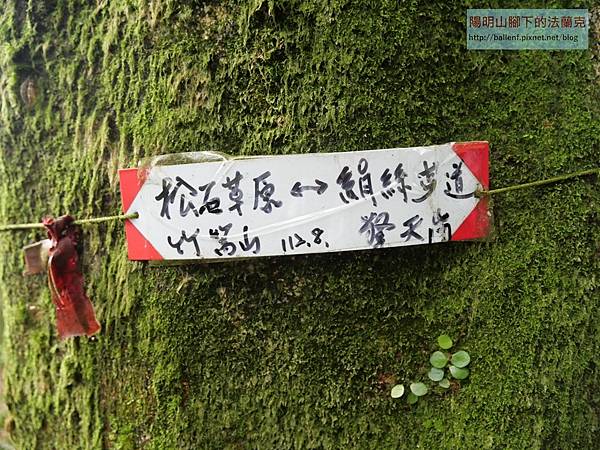 陽明山腳下的法蘭克
http://ballenf.pixnet.net/blog
松石草原↔絹絲步道
竹篙山 112.8. 擎天崗